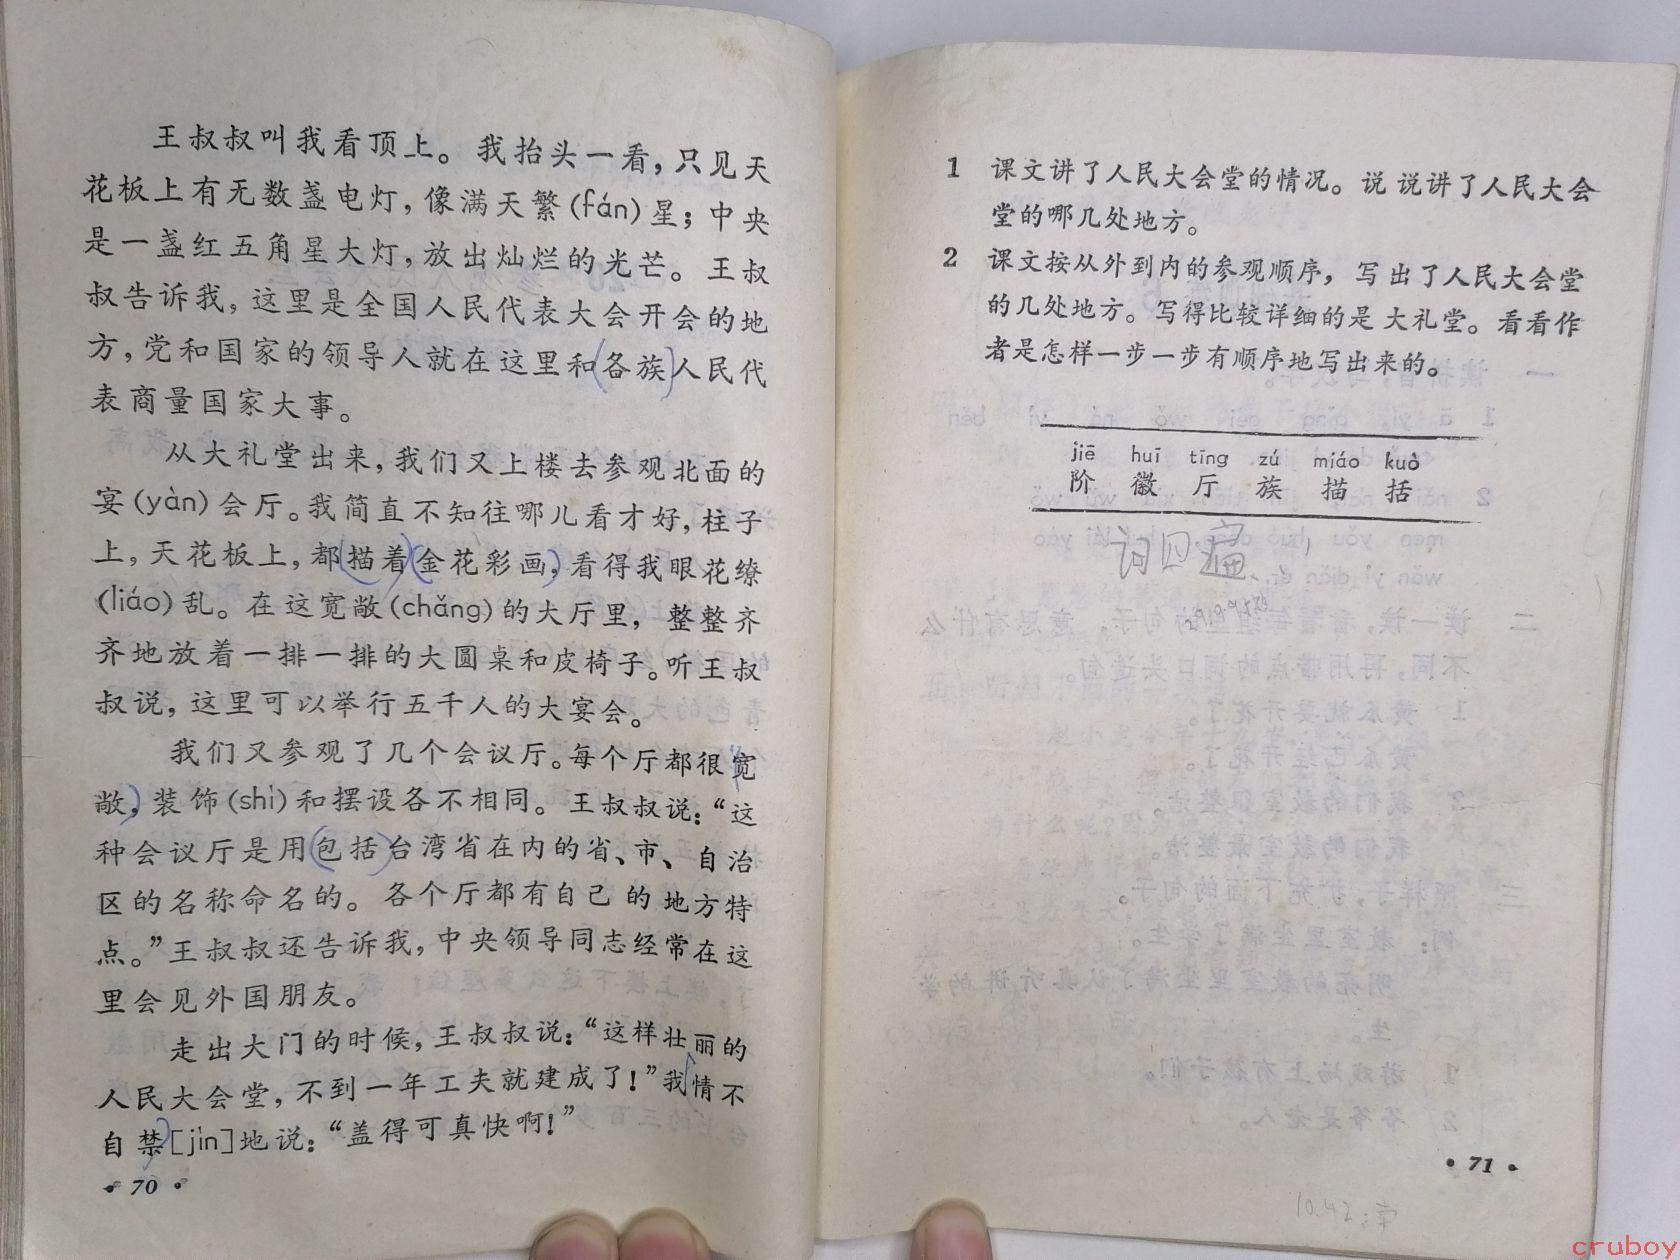 王叔叔叫我看顶上。我抬头一看，只见天
花板上有无数盏电灯，像满天繁(fán)星；中央
是一盏红五角星大灯，放出灿烂的光芒。王叔
叔告诉我，这里是全国人民代表大会开会的地
方，党和国家的领导人就在这里和各族人民代
表商量国家大事。
从大礼堂出来，我们又上楼去参观北面的
宴(yàn)会厅。我简直不知往哪儿看才好，柱子
上，天花板上，都描着金花彩画，看得我眼花缭
(liáo)乱。在这宽敞(chǎng)的大厅里，整整齐
齐地放着一排一排的大圆桌和皮椅子。听王叔
叔说，这里可以举行五千人的大宴会。
我们又参观了几个会议厅。每个厅都很宽
敞，装饰(shì)和摆设各不相同。王叔叔说：“这
种会议厅是用包括台湾省在内的省、市、自治
区的名称命名的。各个厅都有自己的地方特
点。”王叔叔还告诉我，中央领导同志经常在这
里会见外国朋友。
走出大门的时候，王叔叔说：“这样壮丽的
人民大会堂，不到一年工夫就建成了！”我情不
自禁[jìn]地说：“盖得可真快啊！”
·70·
1 课文讲了人民大会堂的情况。说说讲了人民大会
堂的哪几处地方。
2 课文按从外到内的参观顺序，写出了人民大会堂
的几处地方。写得比较详细的是大礼堂。看看作
者是怎样一步一步有顺序地写出来的。
jiē huī tīng zú miáo kuò
阶 徽 厅 族 描 括
词四遍
·71·
cruboy